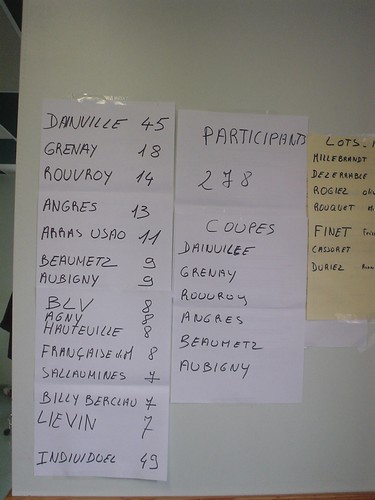 DAINVILLE 45
GRENAY 18
ROUVROY 14
ANGRES 13
ARRAS USAO 11
BEAUMETZ 9
AUBIGNY 9
BLV 8
AGNY 8
HAUTEVILLE 8
FRANÇAISE 8
SALLAUMINES 7
BILLY BERCLAU 7
LIEVIN 7
INDIVIDUEL 49
PARTICIPANTS
278
COUPES
DAINVILLE
GRENAY
ROUVROY
ANGRES
BEAUMETZ
AUBIGNY
LOTS
MILLEBRANDT
ROGIEZ
ROUQUET
FINET
CASSORET
DURIEZ